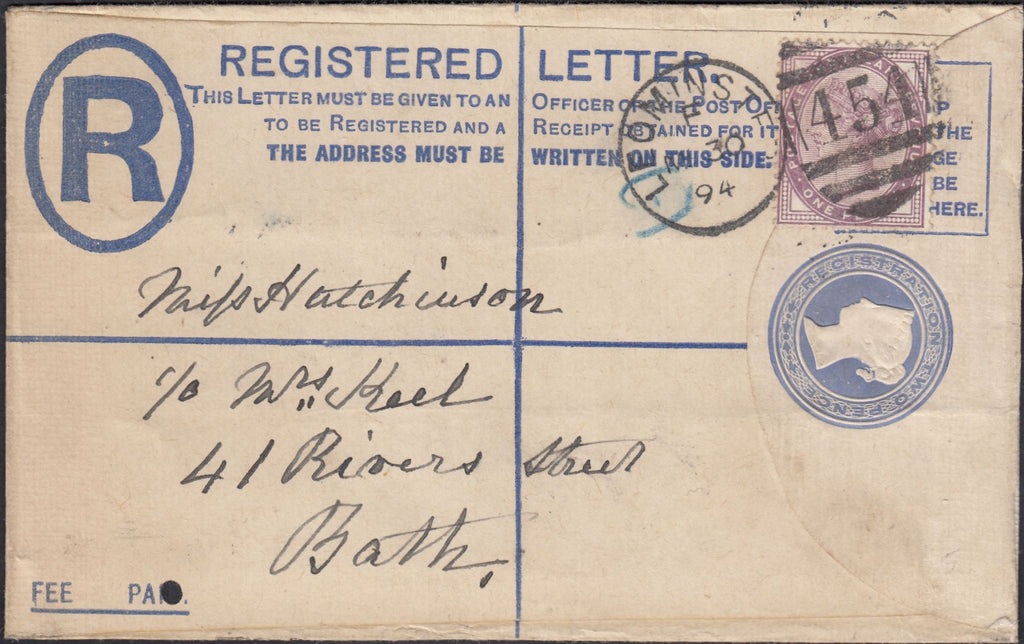 R
REGISTERED LETTER.
THIS LETTER MUST BE GIVEN TO AN OFFICER OF THE POST OF
TO BE REGISTERED AND A RECEIPT OBTAINED FOR IT
THE ADDRESS MUST BE WRITTEN ON THIS SIDE.
LEOMINSTE
F
30
94
454
P
THE
GE
BE
HERE.
ONE
REGISTRATION TWOPENCE
Miss Hutchinson
c/o Mrs. Keel
41 Rivers Street
Bath,
FEE PAI.